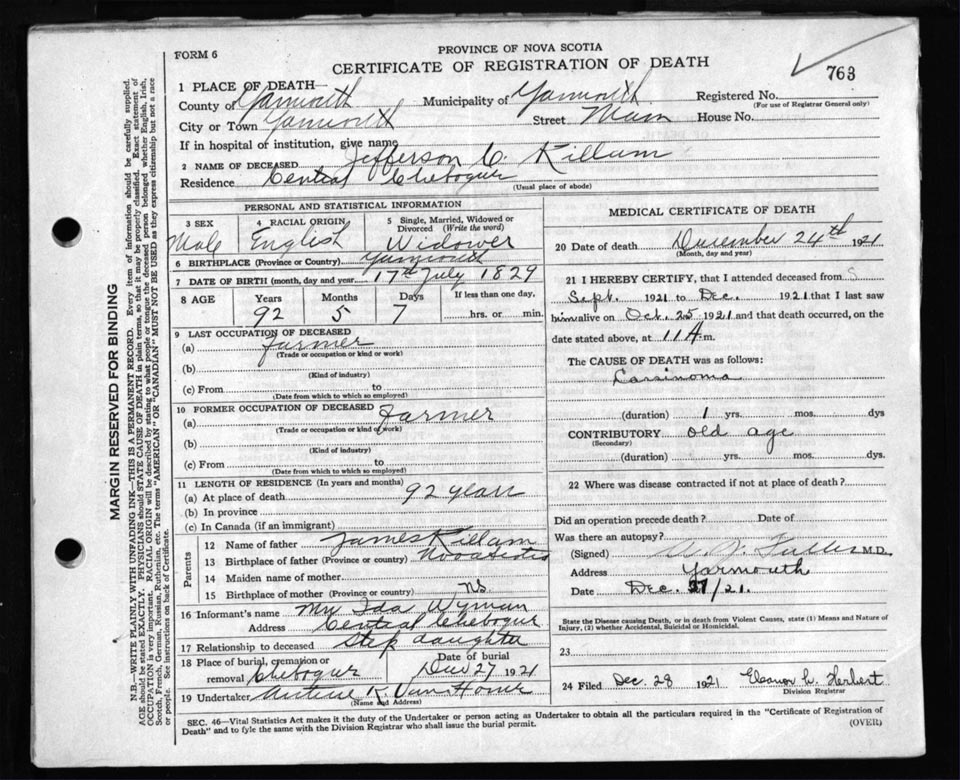 FORM 6
PROVINCE OF NOVA SCOTIA
CERTIFICATE OF REGISTRATION OF DEATH
763
1 PLACE OF DEATH—
County of Yarmouth Municipality of Yarmouth Registered No.
(For use of Registrar General only)
City or Town Yarmouth Street Main House No.
If in hospital of institution, give name
2 NAME OF DECEASED Jefferson C. Killam
Residence Central Chebogue
(Usual place of abode)
PERSONAL AND STATISTICAL INFORMATION
3 SEX Male
4 RACIAL ORIGIN English
5 Single, Married, Widowed or Divorced (Write the word) Widower
6 BIRTHPLACE (Province or Country) Yarmouth
7 DATE OF BIRTH (month, day and year) 17th July 1829
8 AGE Years Months Days If less than one day,
92 5 7 hrs. or min.
9 LAST OCCUPATION OF DECEASED
(a) Farmer
(Trade or occupation or kind or work)
(b)
(Kind of industry)
(c) From to
(Date from which to which so employed)
10 FORMER OCCUPATION OF DECEASED
(a) Farmer
(Trade or occupation or kind of work)
(b)
(Kind of industry)
(c) From to
(Date from which to which so employed)
11 LENGTH OF RESIDENCE (In years and months)
(a) At place of death 92 years
(b) In province
(c) In Canada (if an immigrant)
Parents
12 Name of father James Killam
13 Birthplace of father (Province or country) Nova Scotia
14 Maiden name of mother
15 Birthplace of mother (Province or country) NS
16 Informant's name Mrs Ida Wyman
Address Central Chebogue
17 Relationship to deceased Step daughter
18 Place of burial, cremation or removal Chebogue Date of burial Dec 27 1921
19 Undertaker K. VanHorne
(Name and Address)
MEDICAL CERTIFICATE OF DEATH
20 Date of death December 24th 1921
(Month, day and year)
21 I HEREBY CERTIFY, that I attended deceased from
Sept. 1921 to Dec. 1921 that I last saw
him alive on Oct. 25 1921 and that death occurred, on
date stated above, at 11 A m.
The CAUSE OF DEATH was as follows:
Carsinoma
(duration) 1 yrs. mos. dys
CONTRIBUTORY old age
(Secondary)
(duration) yrs. mos. dys.
22 Where was disease contracted if not at place of death?
Did an operation precede death? Date of
Was there an autopsy?
(Signed) Fuller M.D.
Address Yarmouth
Date Dec. 27/21.
State the Disease causing Death, or in death from Violent Causes, state (1) Means and Nature of
Injury, (2) whether Accidental, Suicidal or Homicidal.
23
24 Filed Dec. 28 1921 Eleanor L. Herbert
Division Registrar
SEC. 46—Vital Statistics Act makes it the duty of the Undertaker or person acting as Undertaker to obtain all the particulars required in the "Certificate of Registration of
Death" and to fyle the same with the Division Registrar who shall issue the burial permit. (OVER)
MARGIN RESERVED FOR BINDING
N.B.—WRITE PLAINLY WITH UNFADING INK—THIS IS A PERMANENT RECORD. Every item of information should be carefully supplied.
AGE should be stated EXACTLY. PHYSICIANS should STATE CAUSE OF DEATH in plain terms, so that it may be properly classified. Exact statement of
OCCUPATION is very important. RACIAL ORIGIN will be described by stating to what people or tongue the deceased person belonged whether English, Irish,
Scotch, French, German, Russian, Ruthenian, etc. The terms "AMERICAN" OR "CANADIAN" MUST NOT BE USED as they express citizenship but not a race
or people. See instructions on back of Certificate.